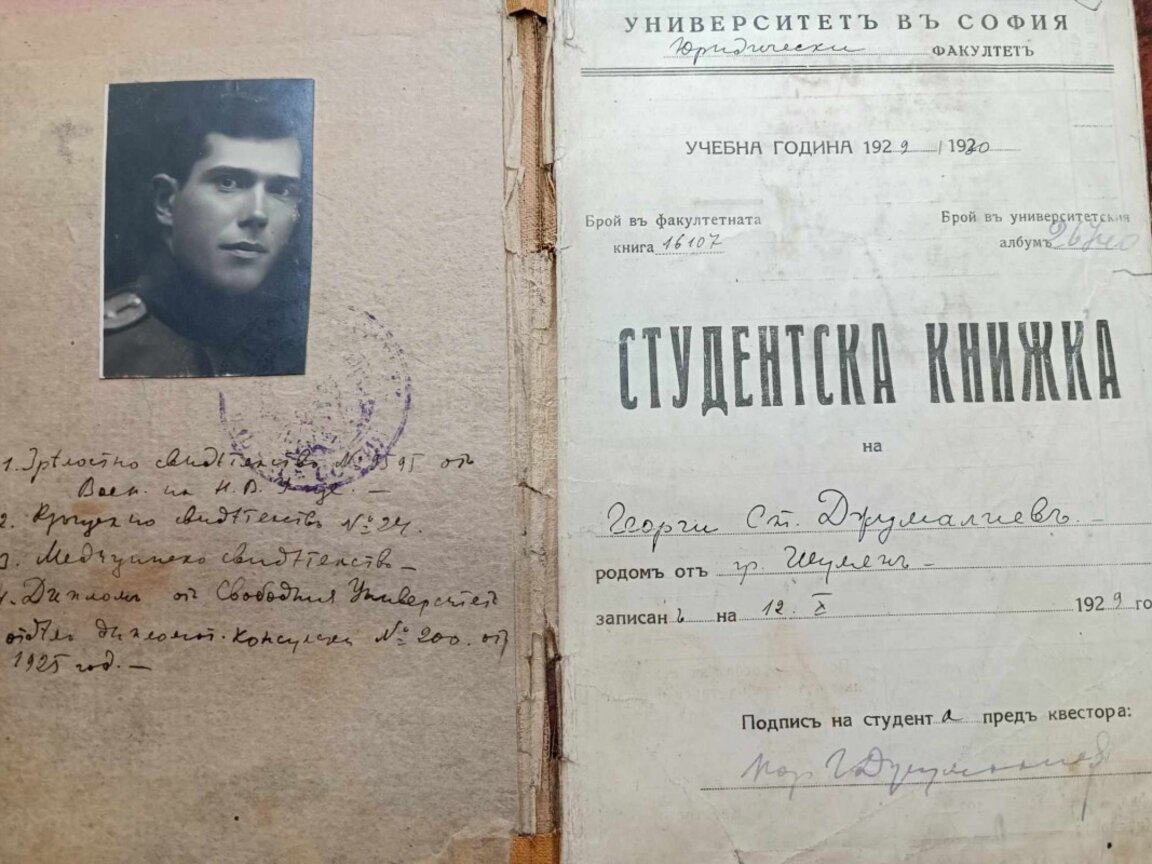 1. Зрѣлостно свидѣтелство № 9595 отъ
Воен. на Н. В. У-ще. —
2. Кръщелно свидѣтелство № 24.
3. Медицинско свидѣтелство —
4. Дипломъ отъ Свободния Университетъ
отдѣлъ дипломат. консулски № 200. отъ
1925 год. —
УНИВЕРСИТЕТЪ ВЪ СОФИЯ
Юридически ФАКУЛТЕТЪ
УЧЕБНА ГОДИНА 1929 / 1930
Брой въ факултетната
книга 16107
Брой въ университетския
албумъ
СТУДЕНТСКА КНИЖКА
на
Георги Ст. Джумалиевъ. —
родомъ отъ гр. Шуменъ —
записан ъ на 12. X 1929 го
Подпись на студент а предъ квестора:
Джумалиев